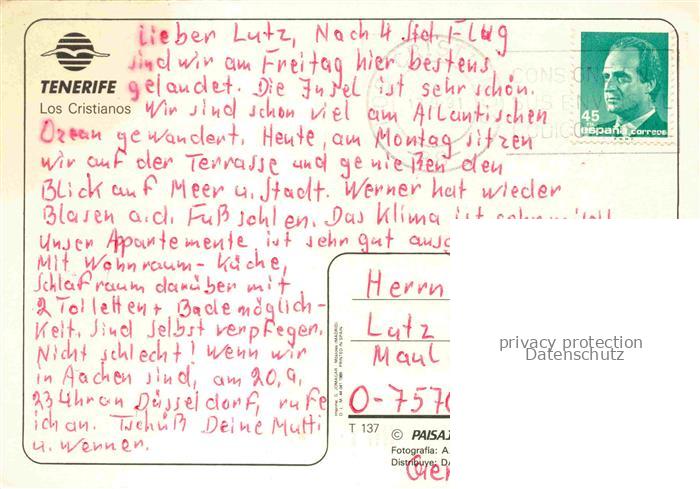 Lieber Lutz, Nach 4 Std Flug
sind wir am Freitag hier bestens
gelandet. Die Insel ist sehr schön.
Wir sind schon viel am Atlantischen
Ozean gewandert. Heute, am Montag sitzen
wir auf der Terrasse und genießen den
Blick auf Meer u. Stadt. Werner hat wieder
Blasen a.d. Fußsohlen. Das Klima ist sehr
Unser Appartemente ist sehr gut
Mit Wohnraum- Küche,
Schlafraum darüber mit
2 Toiletten + Bademöglich-
Keit. Sind selbst verpfeger.
Nicht schlecht! Wenn wir
in Aachen sind, am 20.9.
23 Uhr an Düsseldorf, rufe
ich an. Tschüß Deine Mutti
u. Werner.
TENERIFE
Los Cristianos
45
españa correos
Herrn
Lutz
Maul
O-757
T 137
© PAISAJ
Fotografía: A.
Distribuye: D
Ger
privacy protection
Datenschutz